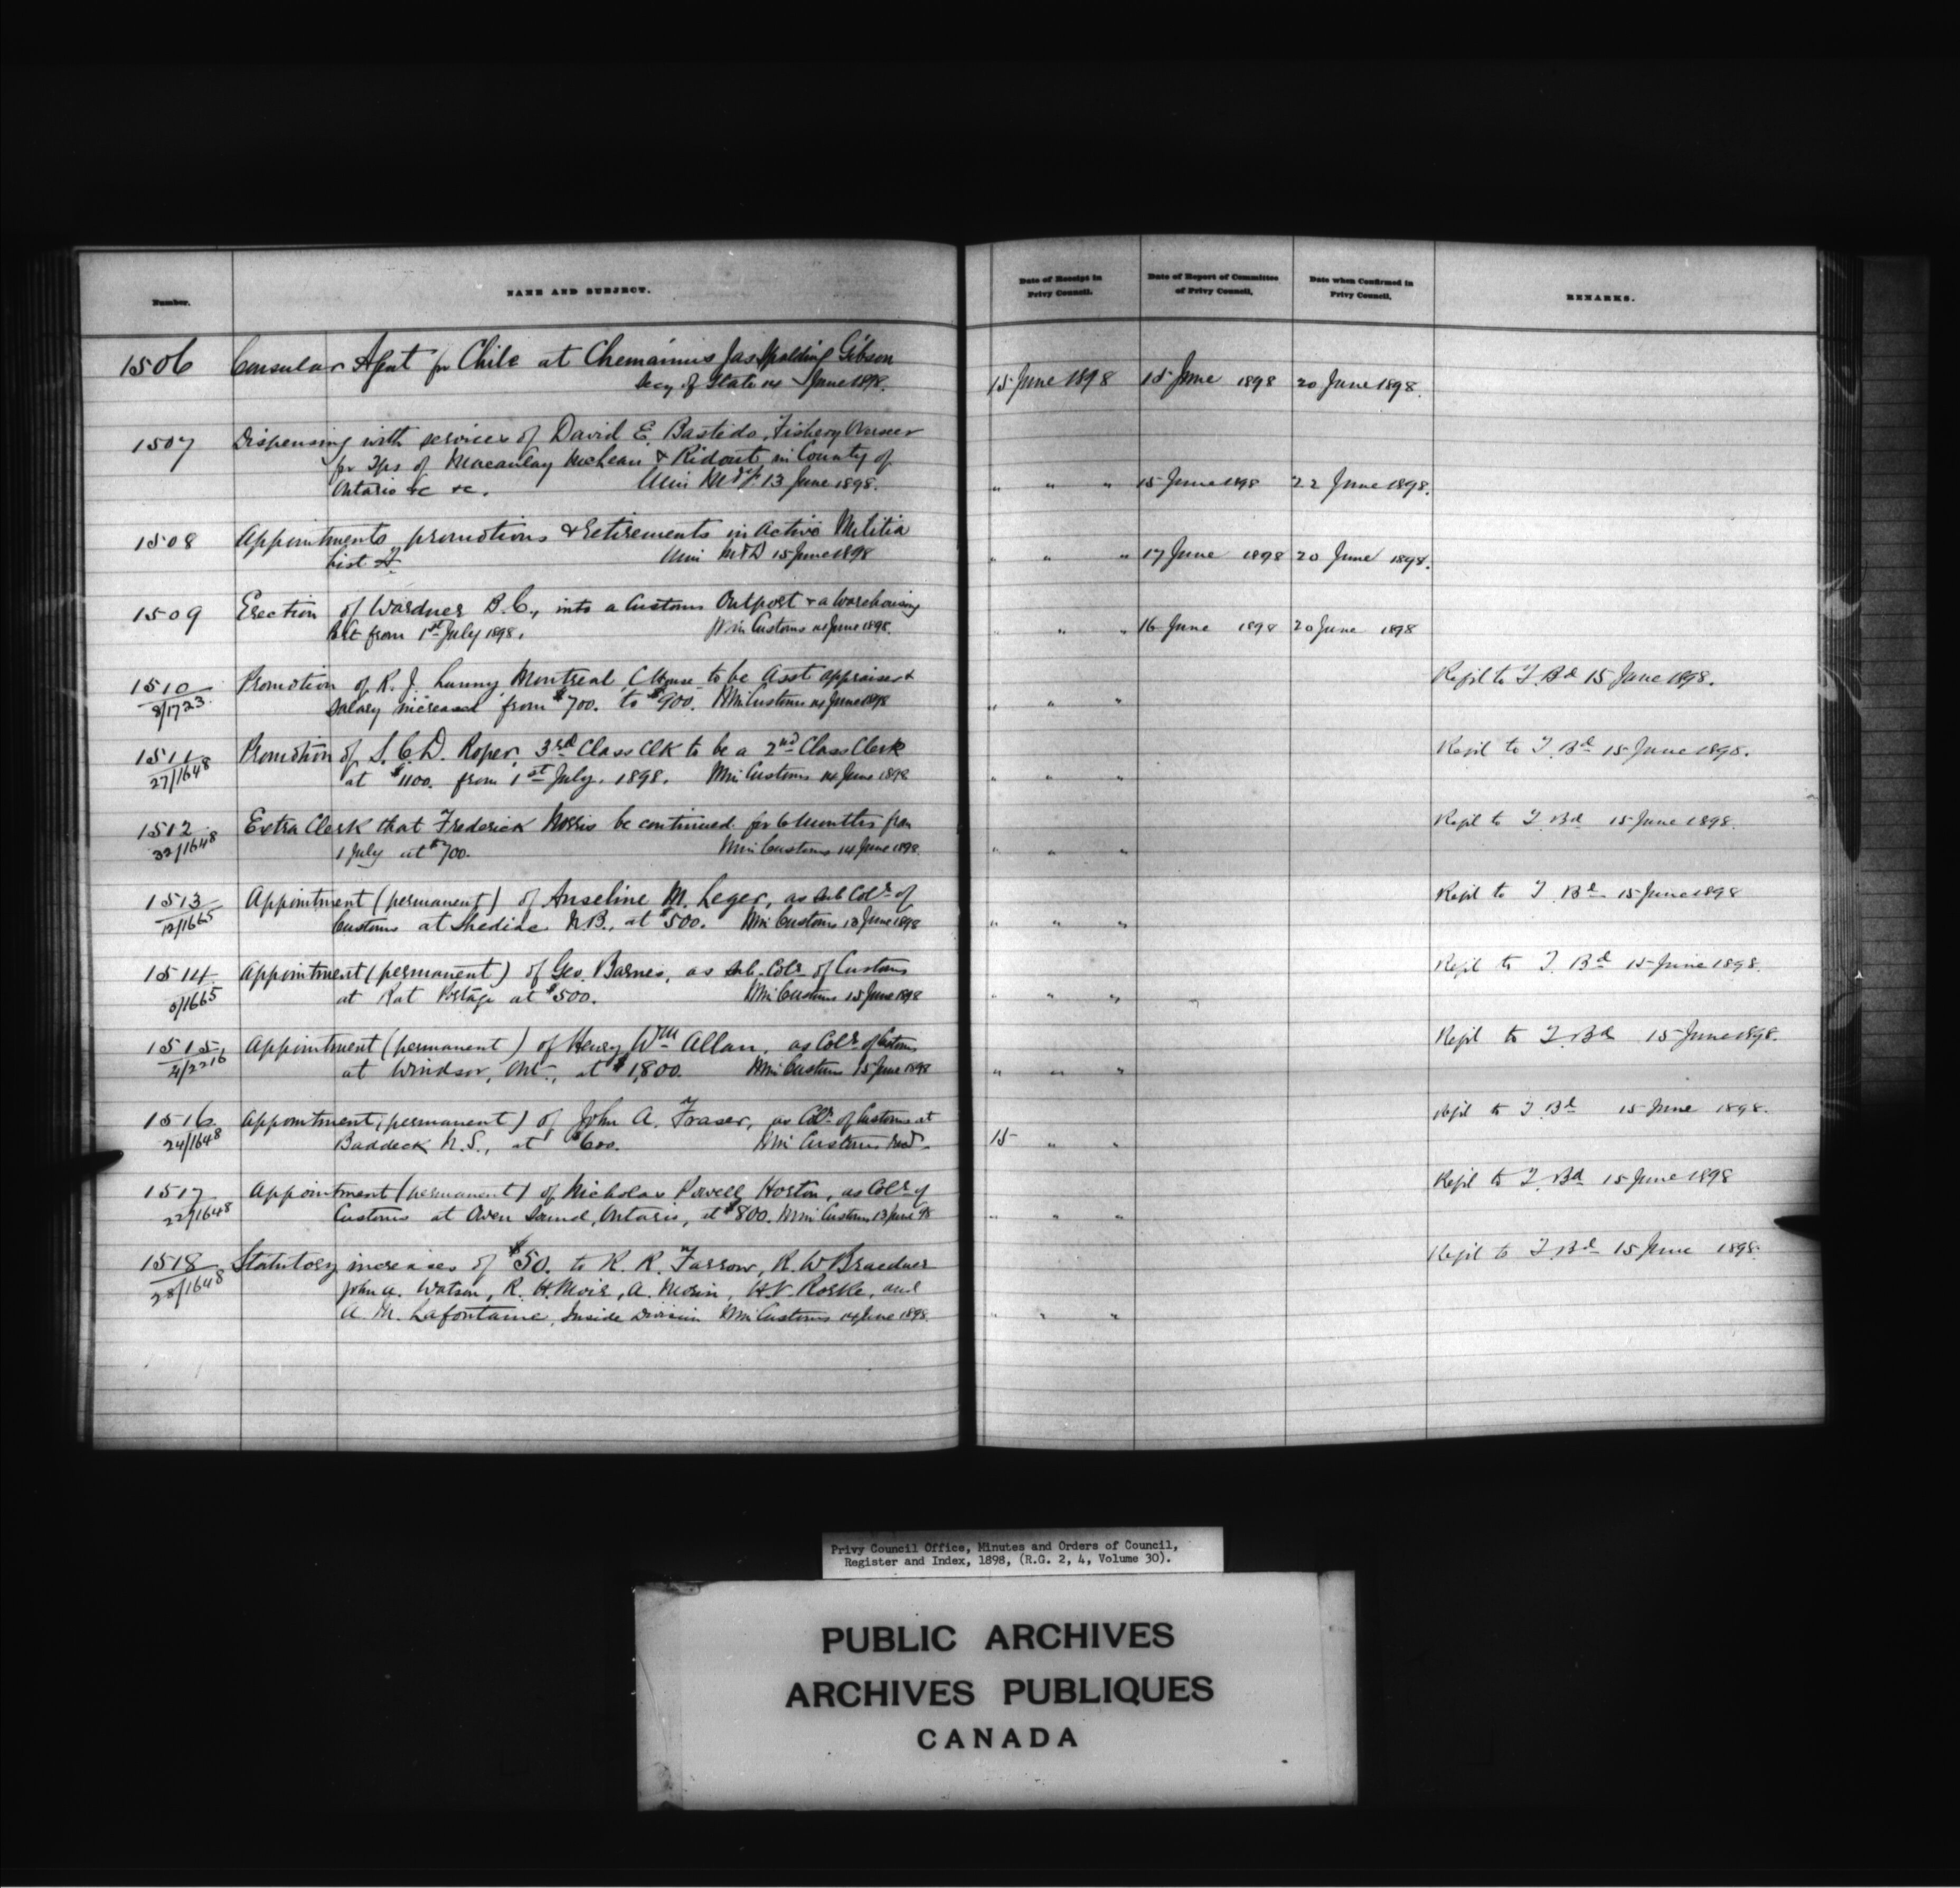 Number.
NAME AND SUBJECT.
Date of Receipt in
Privy Council.
Date of Report of Committee
of Privy Council,
Date when Confirmed in
Privy Council,
REMARKS.
1506 Consular Agent for Chile at Chemainus Jas Spalding Gibson
Secy of State 14 June 1898. 15 June 1898 15 June 1898 20 June 1898.
1507 Dispensing with services of David E. Bastedo, Fishery Overseer
for Tps of Macaulay McLean & Ridout in County of
Ontario &c &c. Min M & F 13 June 1898. " " " 15 June 1898 22 June 1898.
1508 Appointments promotions & retirements in Active Militia
List Min M & D 15 June 1898 " " " 17 June 1898 20 June 1898.
1509 Erection of Wardner B.C., into a Customs Outport & a Warehousing
Pt from 1st July 1898. Min Customs 14 June 1898. " " " 16 June 1898 20 June 1898
1510 Promotion of R. J. Lunny Montreal C House to be Asst appraiser & Refd to T. Bd 15 June 1898.
8/1723. Salary increased from $700. to $900. Min Customs 14 June 1898 " " "
1511 Promotion of S. C. D. Roper, 3rd Class Clk to be a 2nd Class Clerk Refd to T. Bd 15 June 1898.
27/1648 at $1100. from 1st July. 1898. Min Customs 14 June 1898 " " "
1512 Extra Clerk that Frederick Norris be continued for 6 months from Refd to T. Bd 15 June 1898.
32/1648 1 July at $700. Min Customs 14 June 1898. " " "
1513 Appointment (permanent) of Anseline M. Leger, as Sub Colr of Refd to T. Bd 15 June 1898
12/1665 Customs at Shediac N.B., at $500. Min Customs 13 June 1898 " " "
1514 Appointment (permanent) of Geo. Barnes, as Sub-Colr of Customs Refd to T. Bd 15 June 1898.
/1665 at Rat Portage at $500. Min Customs 15 June 1898 " " "
1515 Appointment (permanent) of Henry Wm Allan, as Colr of Customs Refd to T. Bd 15 June 1898.
4/2216 at Windsor, Ont., at $1,800. Min Customs 15 June 1898 " " "
1516 Appointment (permanent) of John A. Fraser, as Colr of Customs at Refd to T. Bd 15 June 1898.
24/1648 Baddeck N.S., at $600. Min Customs 15 " "
1517 Appointment (permanent) of Nicholas Powell Horton, as Colr of Refd to T. Bd 15 June 1898
22/1648 Customs at Owen Sound, Ontario, at $800. Min Customs 13 June 98 " " "
1518 Statutory increases of $50. to R. R. Farrow, R. W Braedner Refd to T. Bd 15 June 1898.
28/1648 John A. Watson, R. H. Moir, A. Morin, H. V. Rorke, and
A. M. Lafontaine, Inside Division Min Customs 14 June 1898. " " "
Privy Council Office, Minutes and Orders of Council,
Register and Index, 1898, (R.G. 2, 4, Volume 30).
PUBLIC ARCHIVES
ARCHIVES PUBLIQUES
CANADA